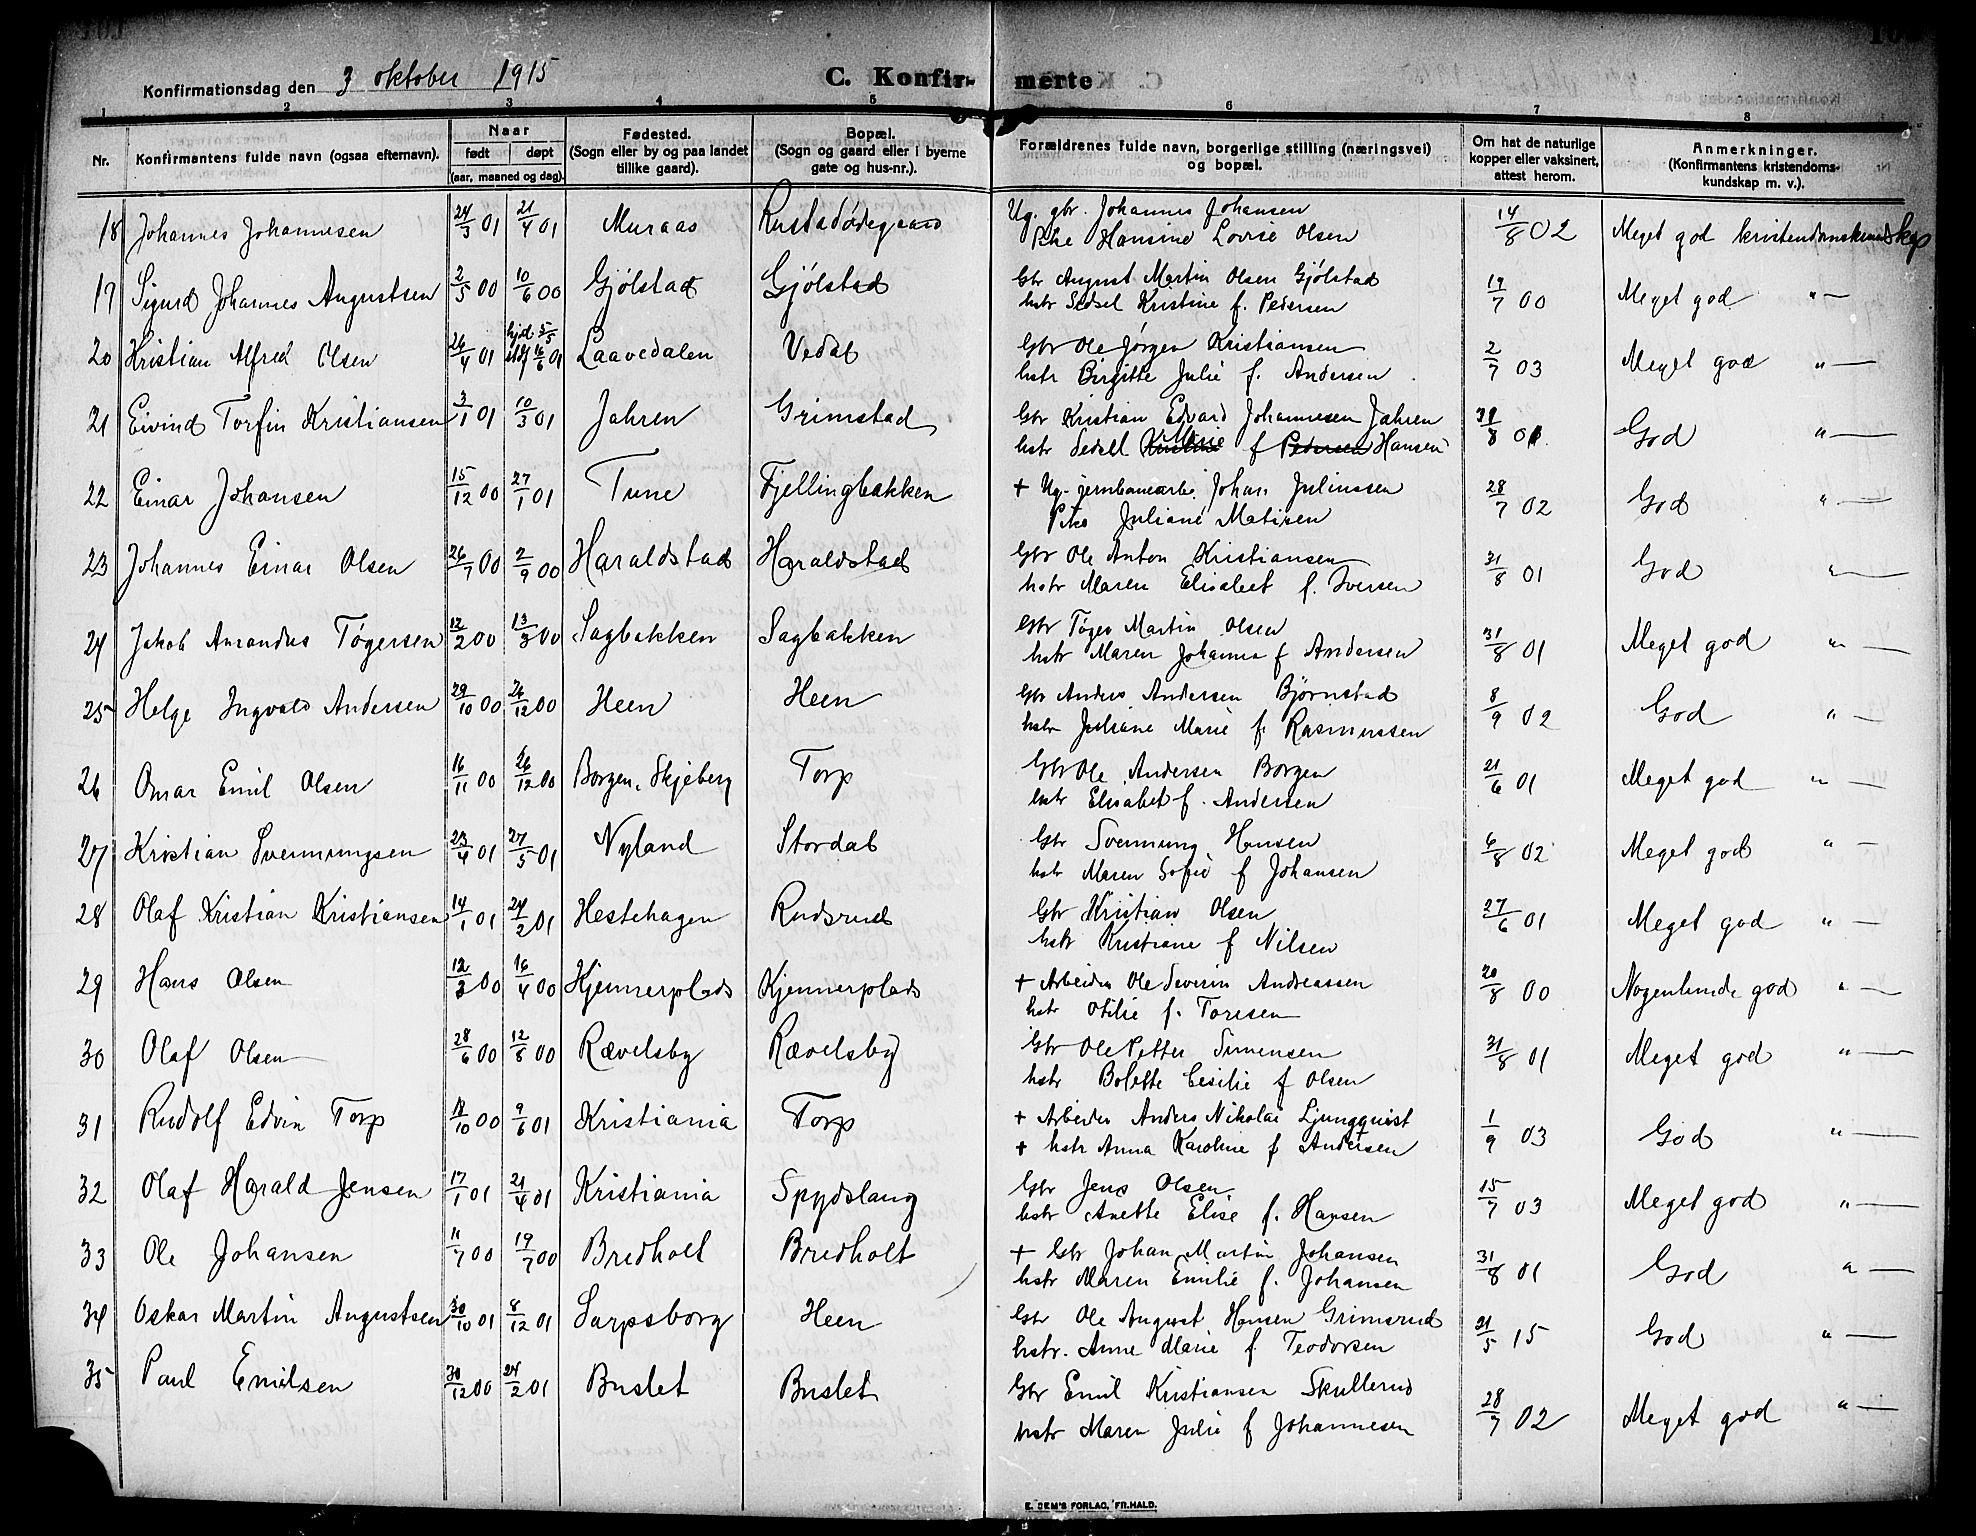 Konfirmationsdag den 3 oktober 1915
C. Konfir- merte
1 2 3 4 5 6 7 8
Nr. Konfirmantens fulde navn (ogsaa efternavn). Naar født døpt (aar, maaned og dag). Fødested. (Sogn eller by og paa landet tillike gaard). Bopæl. (Sogn og gaard eller i byerne gate og hus-nr.). Forældrenes fulde navn, borgerlige stilling (næringsvei) og bopæl. Om hat de naturlige kopper eller vaksinert, attest herom. Anmerkninger. (Konfirmantens kristendomskundskap m. v.).
18 Johannes Johannesen 24/3 01 21/4 01 Muraas Rustadødegaard Ug. gbr. Johannes Johansen 14/8 02 Meget god kristendomskundskap
Pike Hansine Lovise Olsen
19 Sigurd Johannes Augustsen 2/5 00 10/6 00 Gjølstad Gjølstad Gbr August Martin Olsen Gjølstad 19/7 00 Meget god " —
hstr Sedsel Kristine f. Pedersen
20 Kristian Alfred Olsen 26/4 01 hjd. 5/5 stdf 16/6 01 Laavedalen Vedal Gbr Ole Jørgen Kristiansen 2/7 03 Meget god " —
hstr Birgitte Julie f. Andersen
21 Eivind Torfin Kristiansen 3/1 01 10/3 01 Jahren Grimstad Gbr Kristian Edvard Johannesen Jahren 31/8 01 God " —
hstr Sedsel Kristine Marie f Pedersen Hansen
22 Einar Johansen 15/12 00 27/1 01 Tune Fjellingbakken + Ug. jernbanearb. Johan Juliussen 28/7 02 God " —
Pike Juliane Matisen
23 Johannes Einar Olsen 26/7 00 2/9 00 Haraldstad Haraldstad Gbr Ole Anton Kristiansen 31/8 01 God " —
hstr Maren Elisabet f. Iversen
24 Jakob Amandus Tøgersen 12/2 00 13/3 00 Sagbakken Sagbakken Gbr Tøger Martin Olsen 31/8 01 Meget god " —
hstr Maren Johanna f Andersen
25 Helge Ingvald Andersen 29/10 00 26/12 00 Heen Heen Gbr Anders Andersen Bjørnstad 8/9 02 God " —
hstr Juliane Marie f. Rasmussen
26 Omar Emil Olsen 16/11 00 26/12 00 Borgen, Skjeberg Torp Gbr Ole Andersen Borgen 21/6 01 Meget god " —
hstr Elisabet f. Andersen
27 Kristian Svenningsen 23/4 01 27/5 01 Nyland Stordal Gbr Svenning Hansen 6/8 02 Meget god " —
hstr Maren Sofie f Johansen
28 Olaf Kristian Kristiansen 14/1 01 24/2 01 Hestehagen Rudsrud Gbr Kristian Olsen 27/6 01 Meget god " —
hstr Kristiane f Nilsen
29 Hans Olsen 12/3 00 16/4 00 Kjennerplads Kjennerplads + Arbeider Ole Severin Andreassen 20/8 00 Nogenlunde god " —
hstr Otilie f. Toresen
30 Olaf Olsen 28/6 00 12/8 00 Rævelsby Rævelsby Gbr Ole Petter Simensen 31/8 01 Meget god " —
hstr Bolette Cesilie f Olsen
31 Rudolf Edvin Torp 18/10 00 9/6 01 Kristiania Torp + Arbeider Anders Nikolai Ljungquist 1/9 03 God " —
+ hstr Anna Karoline f Andersen
32 Olaf Harald Jensen 17/1 01 21/4 01 Kristiania Spydslaug Gbr Jens Olsen 15/7 03 Meget god " —
hstr Anette Elise f. Hansen
33 Ole Johansen 11/7 00 19/7 00 Bredholt Bredholt + Gbr Johan Martin Johansen 31/8 01 God " —
hstr Maren Emilie f. Johansen
34 Oskar Martin Augustsen 30/10 01 8/12 01 Sarpsborg Heen Gbr Ole August Hansen Grimsrud 21/5 15 God " —
hstr. Anne Marie f Teodorsen
35 Paul Emilsen 30/12 00 24/2 01 Buslet Buslet Gbr Emil Kristiansen Skullerud 28/7 02 Meget god " —
hstr Maren Julie f Johannesen
E. SEM'S FORLAG, FR.HALD.